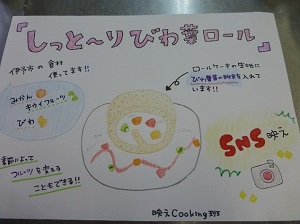 『しっと〜りびわ葉ロール』
伊予市の食材
使ってます!!
みかん
キウイフルーツ
びわ
ロールケーキの生地に
びわ葉茶の粉末を入れて
います!!
SNS映え
季節によって
フルーツを変える
こともできる!!
映えCooking班